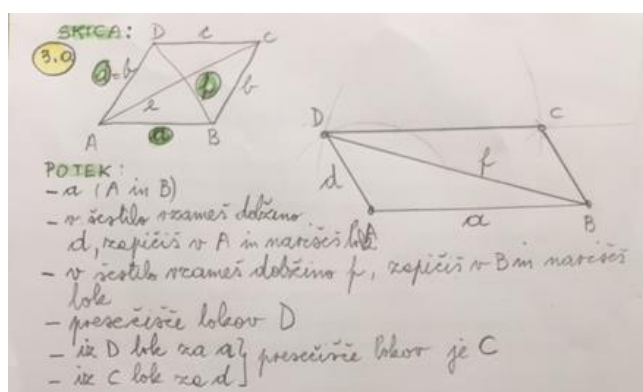 SKICA:
D c C
3.0
d=b e f b
A a B
D C
d f
a B
POTEK:
- a (A in B)
- v šestilo vzameš dolžino
d, zapičiš v A in narišeš lok
- v šestilo vzameš dolžino f, zapičiš v B in narišeš
lok
- presečišče lokov D
- iz D lok za a } presečišče lokov je C
- iz C lok za d